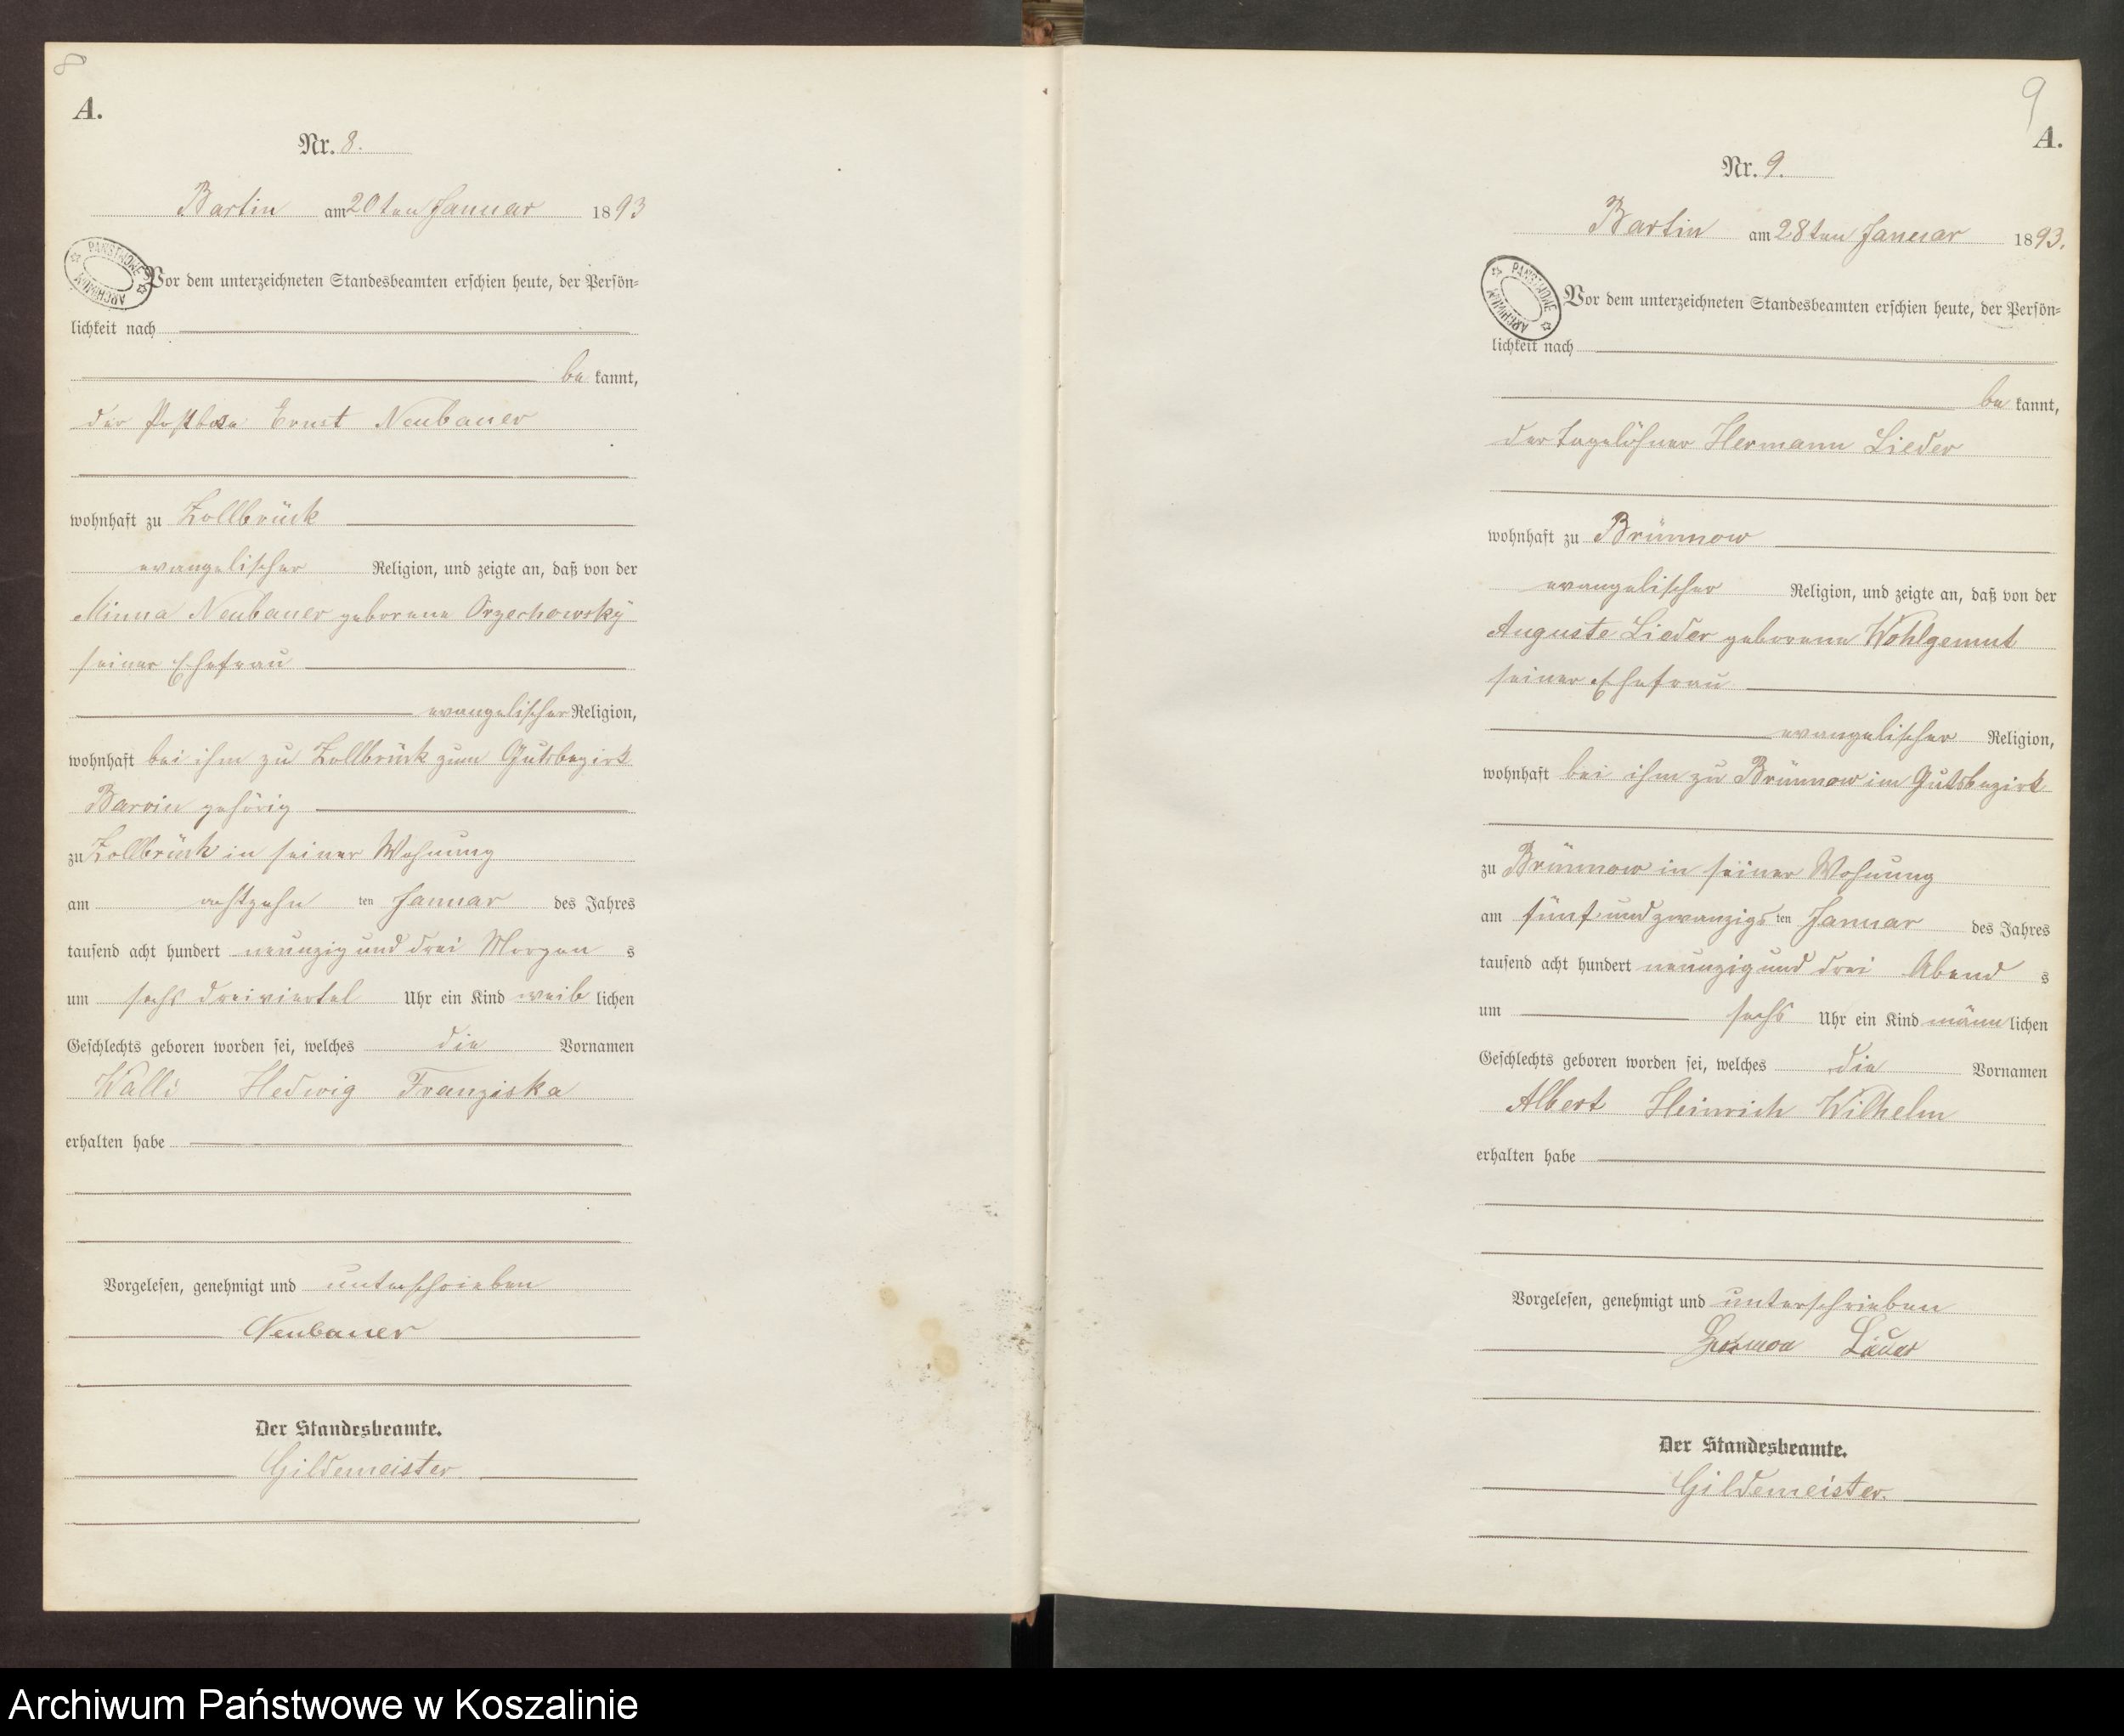 8
A.
Nr. 8.
Bartin am 20ten Januar 1893
PAŃSTWOWE ARCHIWUM
Vor dem unterzeichneten Standesbeamten erschien heute, der Persön-
lichkeit nach
be kannt,
der Postbote Ernst Neubauer
wohnhaft zu Zollbrück
evangelischer Religion, und zeigte an, daß von der
Minna Neubauer geborene Orzechowsky
seiner Ehefrau
evangelischer Religion,
wohnhaft bei ihm zu Zollbrück zum Gutsbezirk
Barvin gehörig
zu Zollbrück in seiner Wohnung
am achtzehn ten Januar des Jahres
tausend acht hundert neunzig und drei Morgen s
um sechs dreiviertel Uhr ein Kind weib lichen
Geschlechts geboren worden sei, welches die Vornamen
Walli Hedwig Franziska
erhalten habe
Vorgelesen, genehmigt und unterschrieben
Neubauer
Der Standesbeamte.
Gildemeister.
9
A.
Nr. 9.
Bartin am 28ten Januar 1893.
PAŃSTWOWE ARCHIWUM
Vor dem unterzeichneten Standesbeamten erschien heute, der Persön-
lichkeit nach
be kannt,
der Tagelöhner Hermann Lieder
wohnhaft zu Brünnow
evangelischer Religion, und zeigte an, daß von der
Auguste Lieder geborene Wohlgemut
seiner Ehefrau
evangelischer Religion,
wohnhaft bei ihm zu Brünnow im Gutsbezirk
zu Brünnow in seiner Wohnung
am fünf und zwanzigs ten Januar des Jahres
tausend acht hundert neunzig und drei Abend s
um sechs Uhr ein Kind männ lichen
Geschlechts geboren worden sei, welches die Vornamen
Albert Heinrich Wilhelm
erhalten habe
Vorgelesen, genehmigt und unterschrieben
Der Standesbeamte.
Gildemeister.
Archiwum Państwowe w Koszalinie